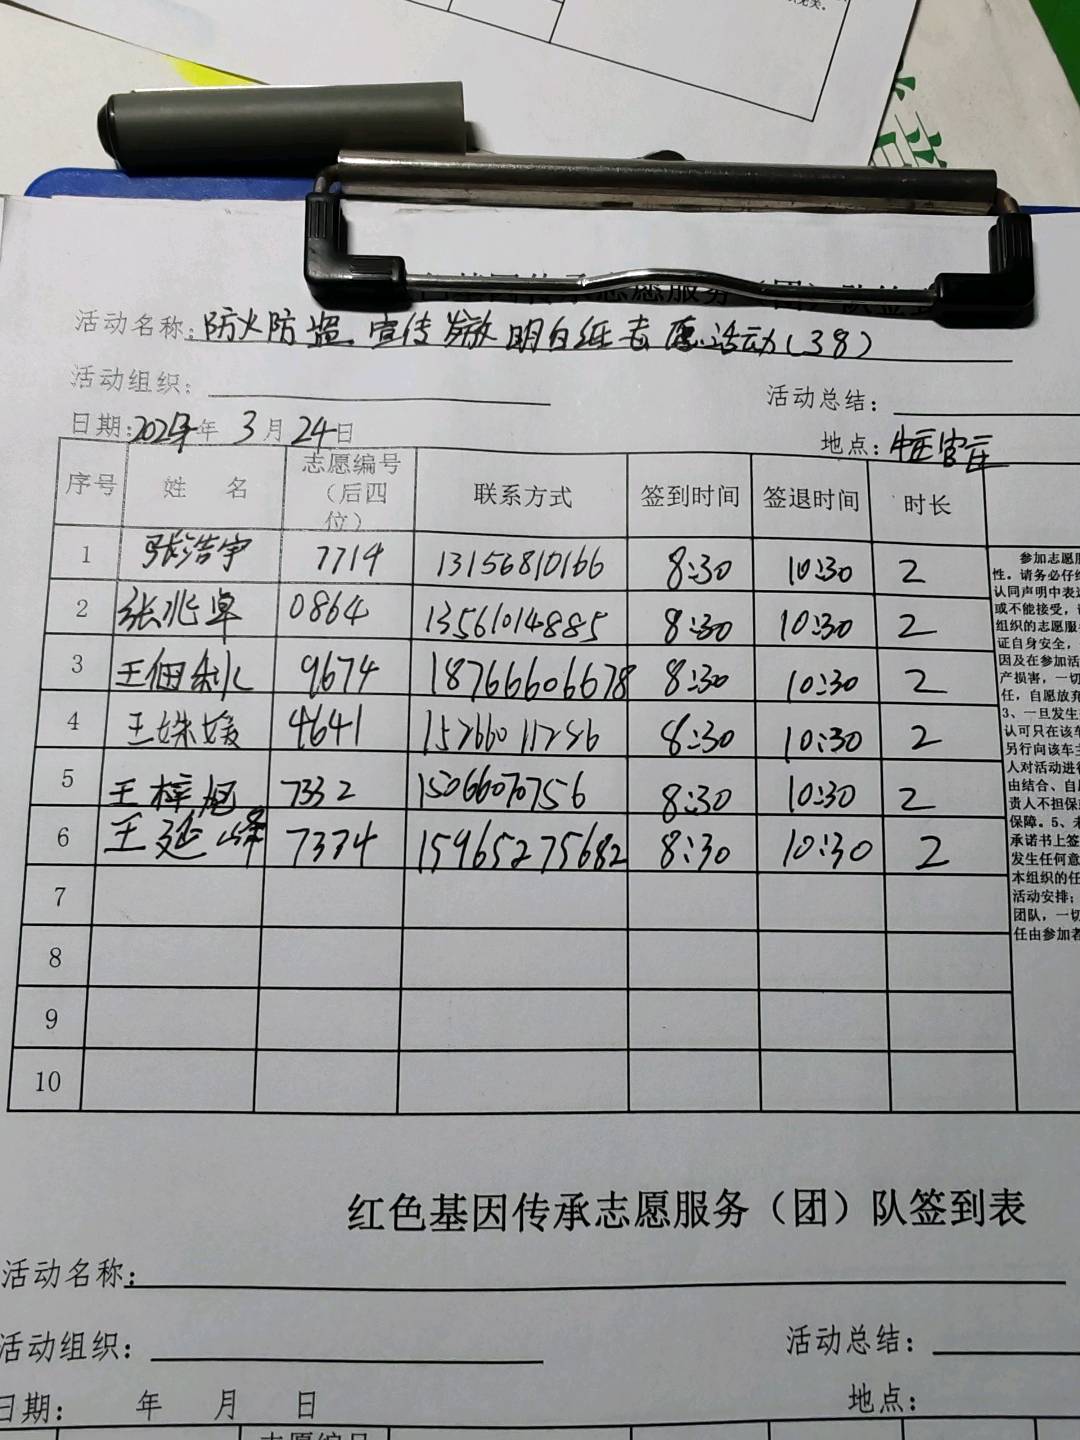 基因传承志愿服务（团）队签
活动名称：防火防盗宣传发放明白纸志愿活动(38)
活动组织：
活动总结：
日期：年 3月24日
地点：
序号 姓 名 志愿编号（后四位） 联系方式 签到时间 签退时间 时长
1 张浩宇 7714 13156810166 8:30 10:30 2
2 张兆卓 0864 13561014885 8:30 10:30 2
3 王佃 9674 18766606678 8:30 10:30 2
4 王姝媛 4641 15266011286 8:30 10:30 2
5 王梓旭 7332 15066070756 8:30 10:30 2
6 王延峰 7334 15965275682 8:30 10:30 2
7
8
9
10
参加志愿服
性。请务必仔细
认同声明中表述
或不能接受，
组织的志愿服
证自身安全，
因及在参加活
产损害，一切
任，自愿放弃
3、一旦发生
认可只在该车
另行向该车主
人对活动进行
由结合、自
责人不担保
保障。5、未
承诺书上签
发生任何意
本组织的任
活动安排；
团队，一切
任由参加者
红色基因传承志愿服务（团）队签到表
活动名称：
活动组织：
活动总结：
日期： 年 月 日
地点：
志愿编号